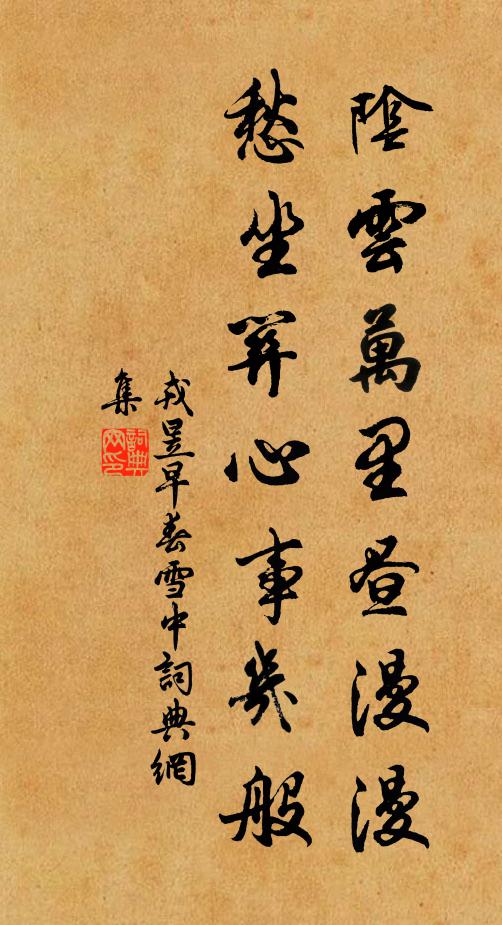 陰雲萬里晝漫漫
愁坐關心事幾般
戎昱早春雪中詞典網
集
詞典
网印